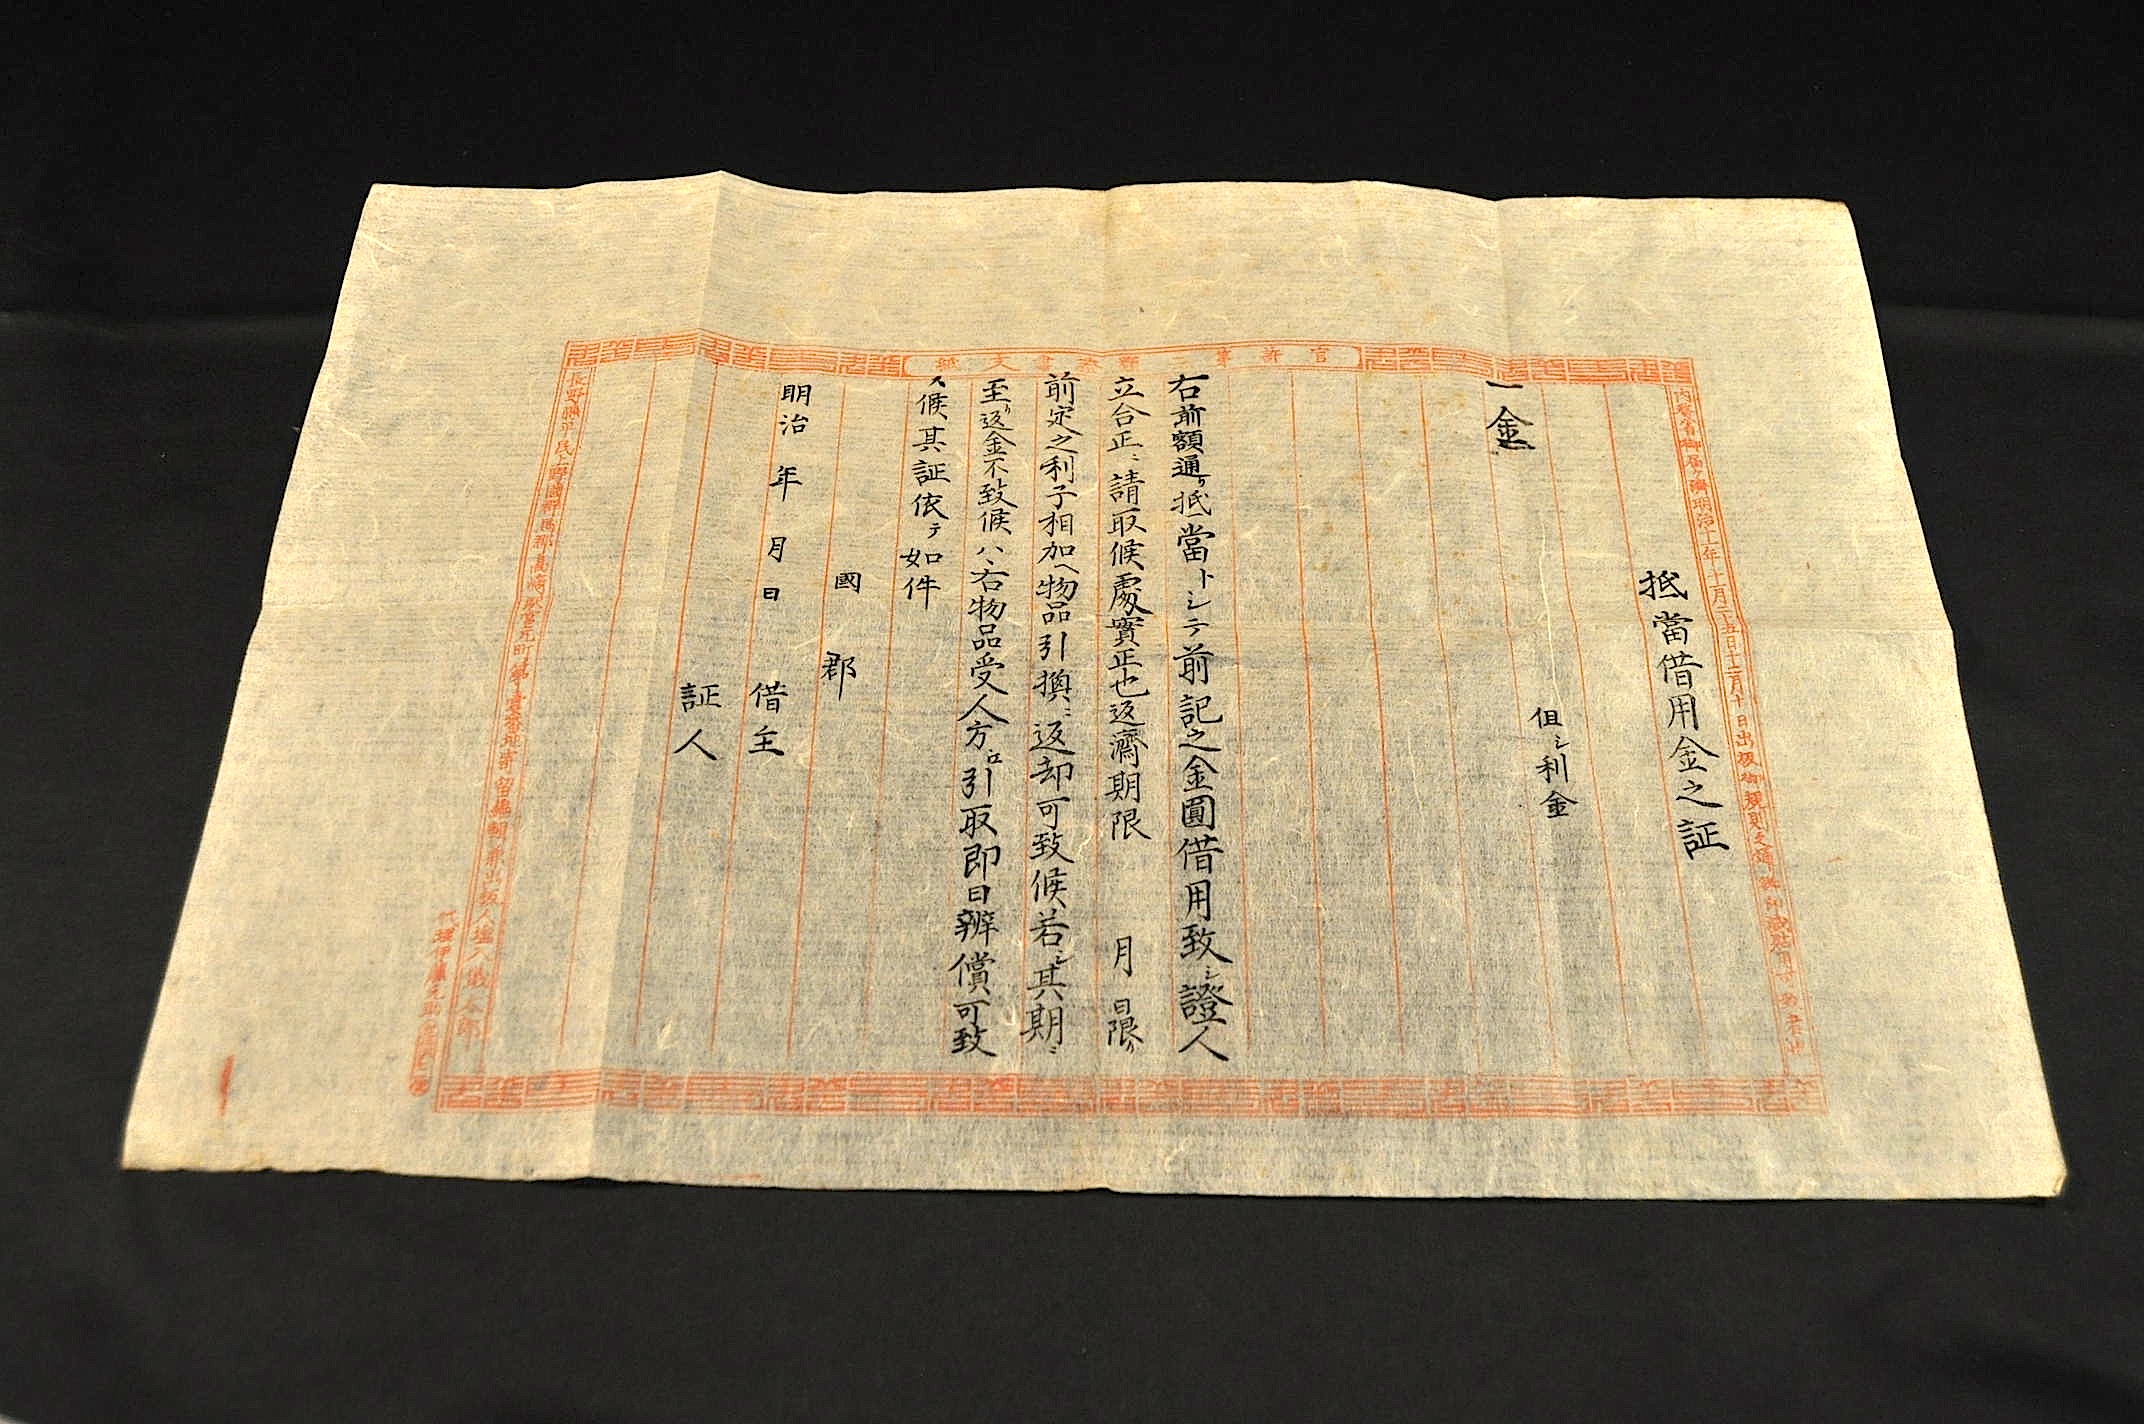 官許第 證書文紙
内務省御届ケ濟明治十一年十二月二十五日十二月十日出板御規則
抵當借用金之証
但シ利金
一金
右前額通リ抵當トシテ前記之金圓借用致シ證人
立合正ニ請取候處實正也返濟期限　月　日限リ
前定之利子相加ヘ物品引換ニ返却可致候若シ其期ニ
至リ返金不致候ハヽ右物品受人方ロ引取即日辨償可致
候其証依テ如件
國　郡
明治　年　月　日　借主
証人
長野縣平民上野國群馬郡高崎驛 元町第 寄留 出板人塩 太郎